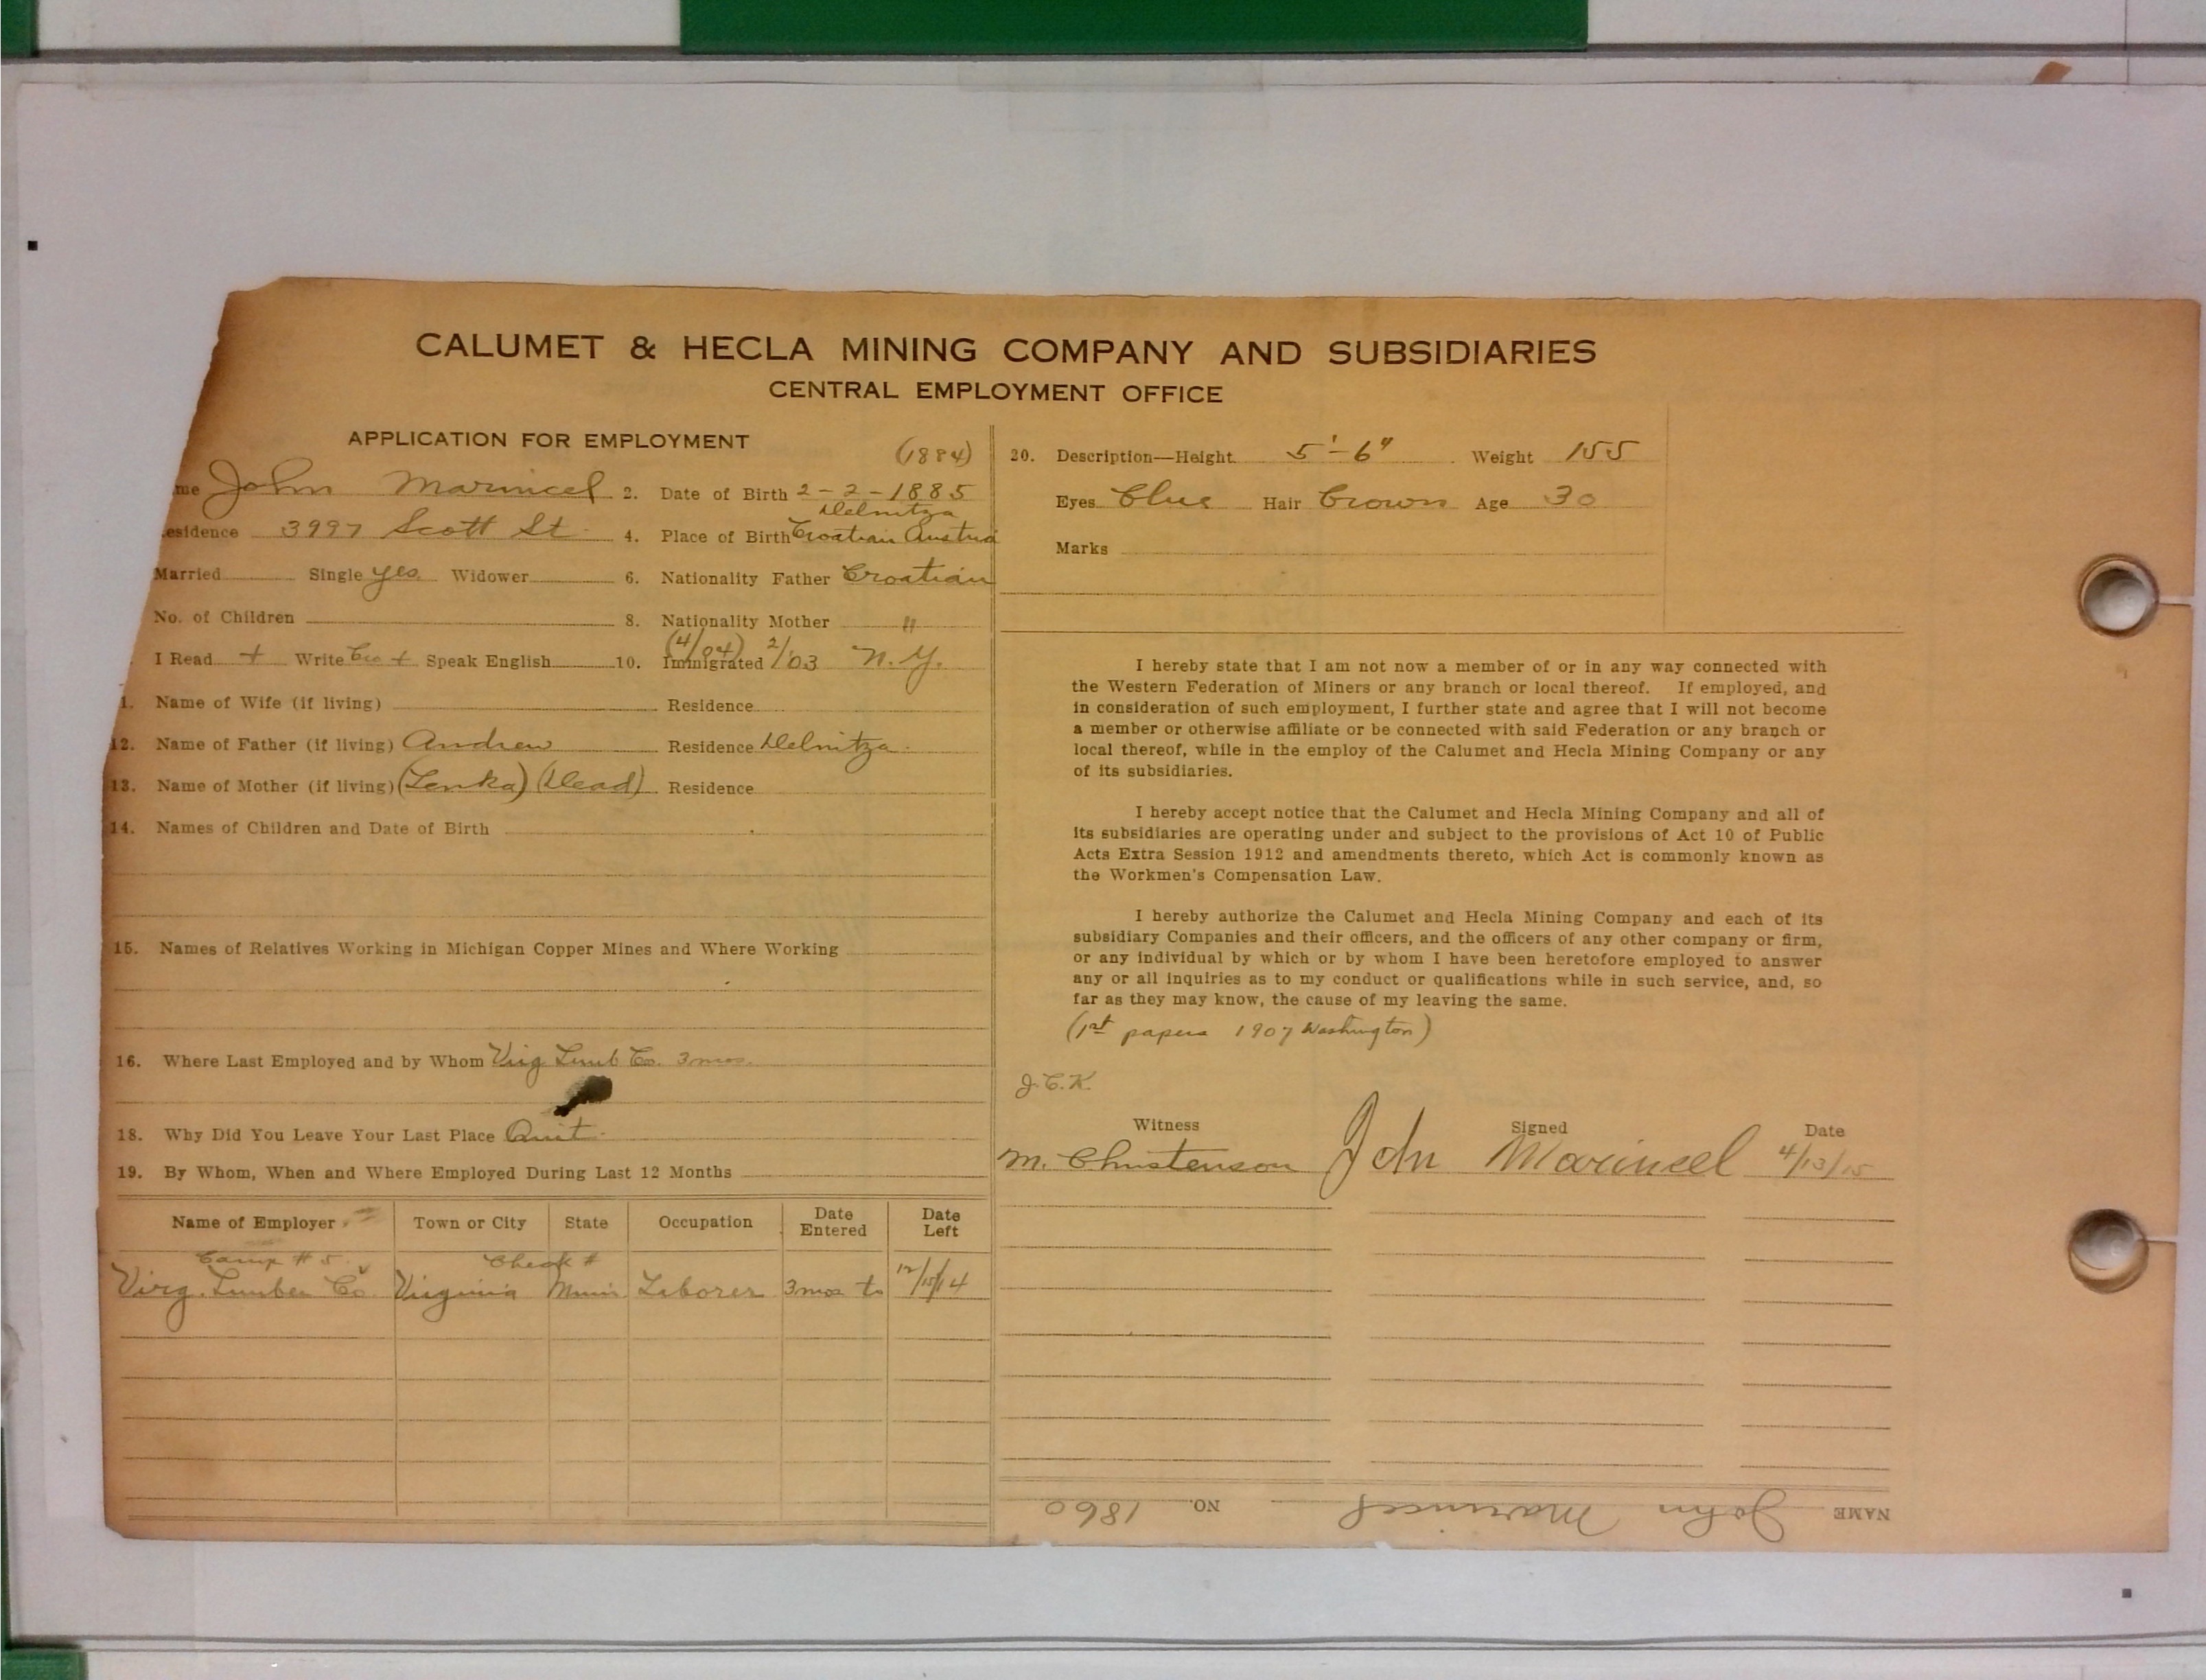 CALUMET & HECLA MINING COMPANY AND SUBSIDIARIES
CENTRAL EMPLOYMENT OFFICE
APPLICATION FOR EMPLOYMENT
(1884)
me John Marincel 2. Date of Birth 2-2-1885
Delnitza
esidence 3997 Scott St. 4. Place of Birth Croatian Austria
Married Single yes Widower 6. Nationality Father Croatian
No. of Children 8. Nationality Mother "
(4/04)
I Read + Write Cro + Speak English 10. Immigrated 2/03 N.Y.
1. Name of Wife (if living) Residence
12. Name of Father (if living) Andrew Residence Delnitza
13. Name of Mother (if living) (Lenka) (Dead) Residence
14. Names of Children and Date of Birth
15. Names of Relatives Working in Michigan Copper Mines and Where Working
16. Where Last Employed and by Whom Virg Lumb Co. 3 mos.
18. Why Did You Leave Your Last Place Quit
19. By Whom, When and Where Employed During Last 12 Months
Name of Employer Town or City State Occupation Date Entered Date Left
Camp # 5 Check #
Virg. Lumber Co. Virginia Minn Laborer 3 mos to 12/15/14
20. Description—Height 5'-6" Weight 155
Eyes Blue Hair Brown Age 30
Marks
I hereby state that I am not now a member of or in any way connected with
the Western Federation of Miners or any branch or local thereof. If employed, and
in consideration of such employment, I further state and agree that I will not become
a member or otherwise affiliate or be connected with said Federation or any branch or
local thereof, while in the employ of the Calumet and Hecla Mining Company or any
of its subsidiaries.
I hereby accept notice that the Calumet and Hecla Mining Company and all of
its subsidiaries are operating under and subject to the provisions of Act 10 of Public
Acts Extra Session 1912 and amendments thereto, which Act is commonly known as
the Workmen's Compensation Law.
I hereby authorize the Calumet and Hecla Mining Company and each of its
subsidiary Companies and their officers, and the officers of any other company or firm,
or any individual by which or by whom I have been heretofore employed to answer
any or all inquiries as to my conduct or qualifications while in such service, and, so
far as they may know, the cause of my leaving the same.
(1st papers 1907 Washington)
J.C.K.
Witness Signed Date
M. Christenson John Marincel 4/13/15
NAME John Marincel NO. 1860